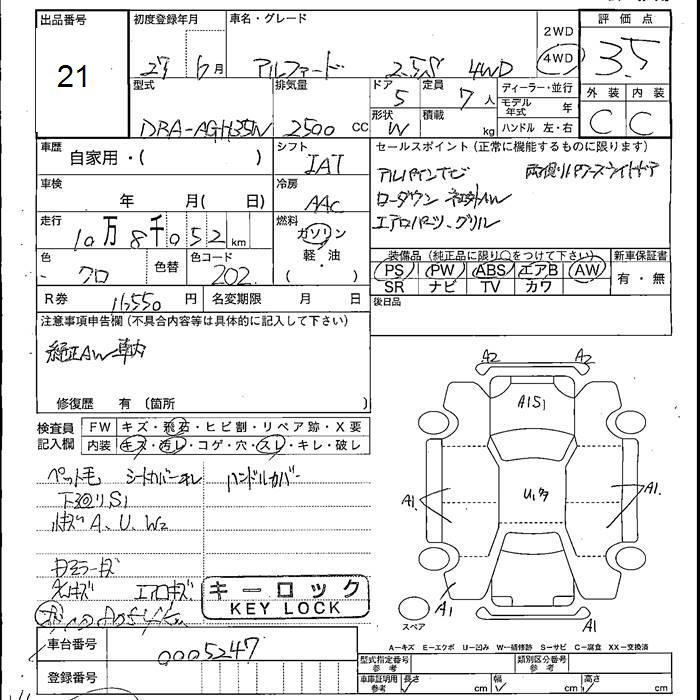 出品番号
21
初度登録年月
27 6月
車名・グレード
アルファード 2.5S 4WD
2WD
4WD
評価点
3.5
外装 内装
C C
型式
DBA-AGH35W
排気量
2500 CC
ドア
5
定員
7 人
形状
W
積載
kg
ディーラー・並行
モデル年式 年
ハンドル 左・右
車歴
自家用・( )
シフト
IAT
セールスポイント (正常に機能するものに限ります)
アルパインナビ 両側パワースライドドア
ローダウン 社外AW
エアロパーツ、グリル
車検
年 月( 日)
冷房
AAC
走行
10万8千052km
燃料
ガソリン
軽・油
( )
色
クロ
色替
色コード
202
装備品 (純正品に限り○をつけて下さい)
PS PW ABS エアB AW
SR ナビ TV カワ
新車保証書
有・無
R券 円
名変期限 月 日
後日品
注意事項申告欄 (不具合内容等は具体的に記入して下さい)
純正AW車内
修復歴 有 (箇所 )
検査員記入欄
FW キズ・飛石・ヒビ割・リペア跡・X要
内装 キズ・汚レ・コゲ・穴・スレ・キレ・破レ
ペット毛 シートカバーキレ ハンドルカバー
下廻りS1
A、U、W2
エアロキズ
キーロック
KEY LOCK
車台番号
0005247
登録番号
A2 A2
A1S1
U1
A1. A1.
A1 A1
スペア
A-キズ E-エクボ U-凹み W-補修跡 S-サビ C-腐食 XX-交換済
型式指定番号 参考
類別区分番号 参考
車庫証明用 参考
長さ cm 幅 cm 高さ cm